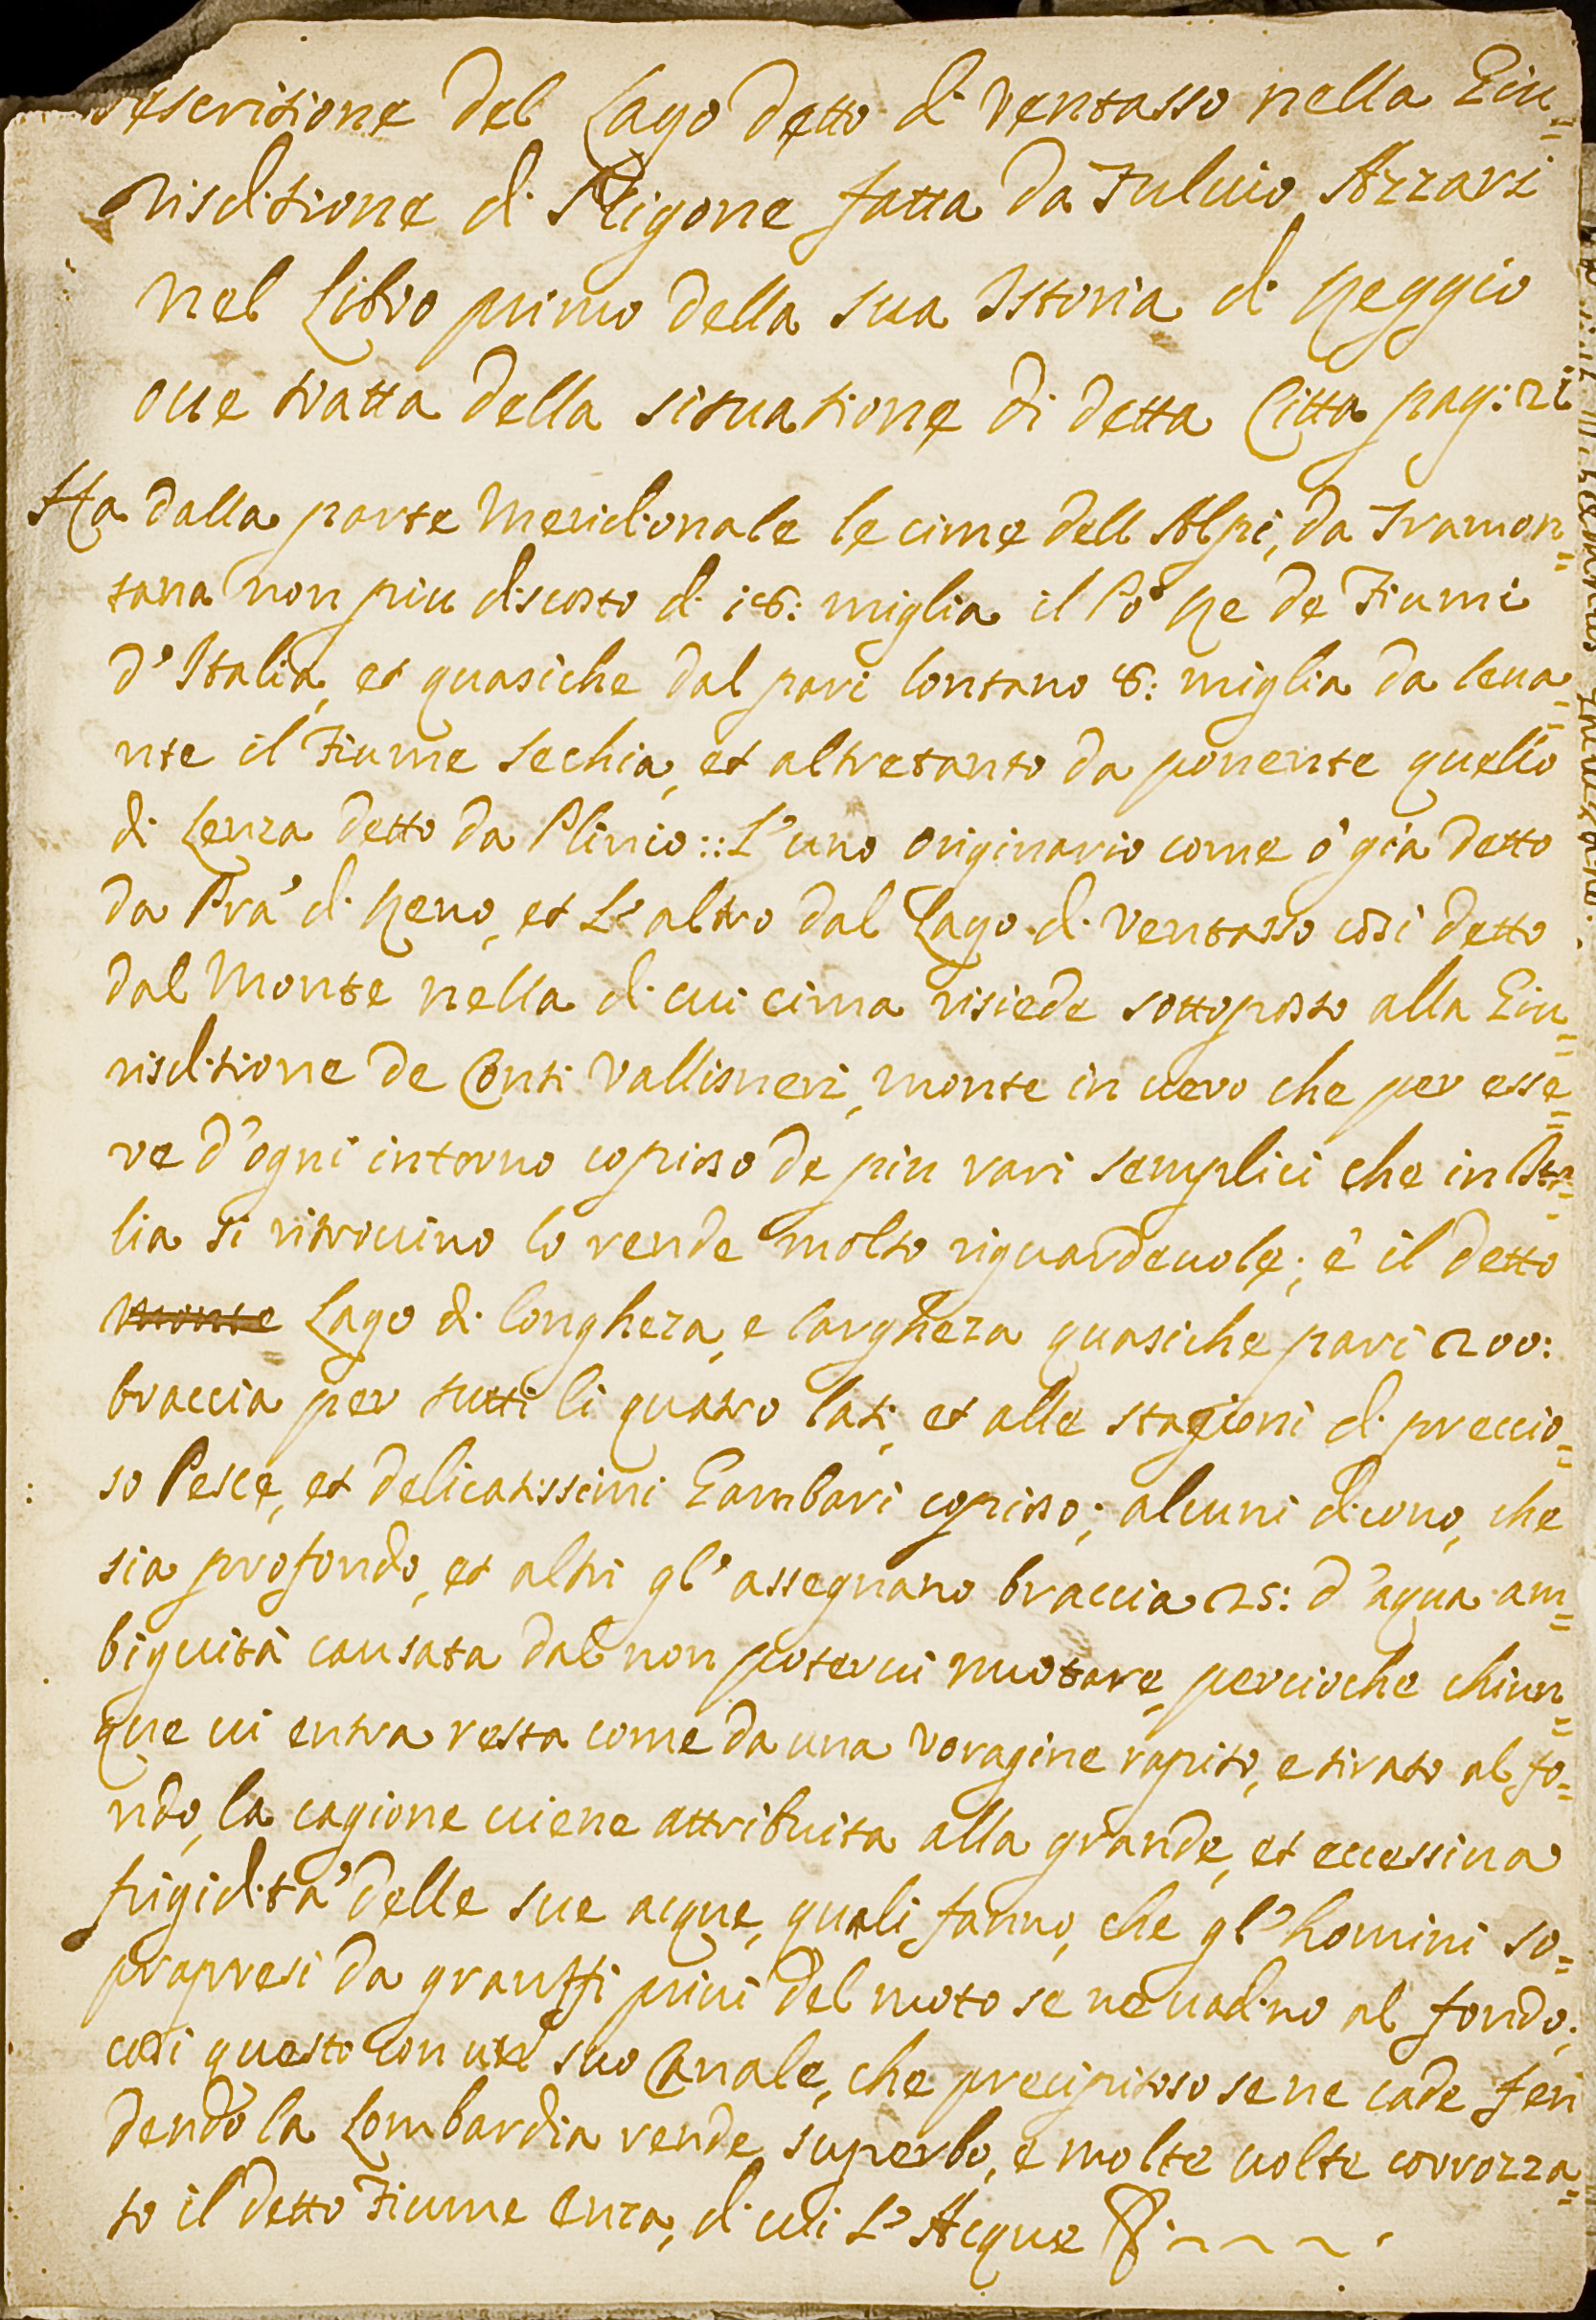 descritione del Lago detto di Ventasso nella Giu=
risditione di Regone fatta da Fulvio Azzari
nel Libro primo della sua Istoria di Reggio
oue tratta della situatione di detta Citta pag: 21
Ha dalla parte Meridionale le cime dell Alpi, da Tramon=
tana non piu discosto di 18: miglia il Pò Re de Fiumi
d'Italia, et quasiche dal pari lontano 8: miglia da leua=
nte il Fiume Sechia, et altretanto da ponente quello
di Lenza detto da Plinio :: L'uno originario come ò già detto
da Prà di Reno, et L'altro dal Lago di Ventasso così detto
dal Monte nella di cui cima risiede sottoposto alla Giu=
risditione de Conti Vallisneri, monte in uero che per esse=
re d'ogni intorno copioso de piu rari semplici che in Ita=
lia si ritrouino lo rende molto riguardeuole; è il detto
Monte Lago di longheza, e largheza quasiche pari 200:
braccia per tutti li quatro lati, et alle stagioni di preccio=
so Pesce, et delicatissimi Gambari copioso; alcuni dicono, che
sia profondo, et altri gl'assegnano braccia 25: d'aqua am=
biguità causata dal non poterui nuotare, percioche chiun=
que ui entra resta come da una voragine rapito, e tirato al fo=
ndo, la cagione uiene attribuita alla grande, et eccessiua
frigidità delle sue acque, quali fanno, che gl'homini so=
prapresi da granffi priui del moto se ne uadino al fondo;
così questo con un suo Canale, che precipitoso se ne cade fen
dendo la Lombardia rende superbo, e molte uolte corrozza=
to il detto Fiume Enza, di cui L'Acque